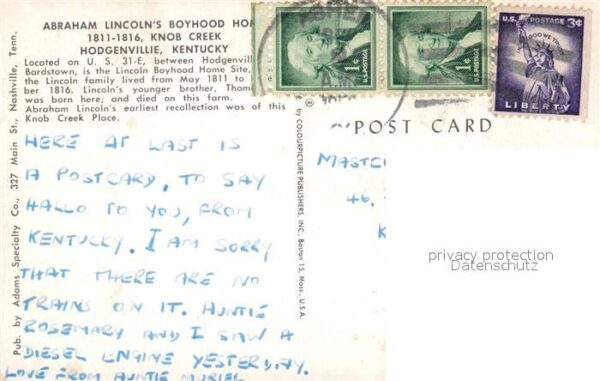 ABRAHAM LINCOLN'S BOYHOOD
1811-1816, KNOB CREEK
HODGENVILLIE, KENTUCKY
Located on U. S. 31-E, between
Bardstown, is the Lincoln Boyhood Home Site,
the Lincoln family lived from May 1811 to
ber 1816. Lincoln's younger brother,
was born here; and died on this farm.
Abraham Lincoln's earliest recollection was of this
Knob Creek Place.
HERE AT LAST IS
A POSTCARD, TO SAY
HALLO TO YOU, FROM
KENTUCKY. I AM SORRY
THAT THERE ARE NO
TRAINS ON IT. AUNTIE
ROSEMARY AND I SAW A
DIESEL ENGINE YESTERDAY.
LOVE FROM AUNTIE MURIEL
Pub. by Adams Specialty Co., 327 Main St., Nashville, Tenn.
by COLOURPICTURE PUBLISHERS, INC., Boston 15, Mass., U.S.A.
1¢
U.S. POSTAGE
1¢
U.S. POSTAGE
U.S. POSTAGE 3¢
IN GOD WE TRUST
LIBERTY
POST CARD
46,
privacy protection
Datenschutz